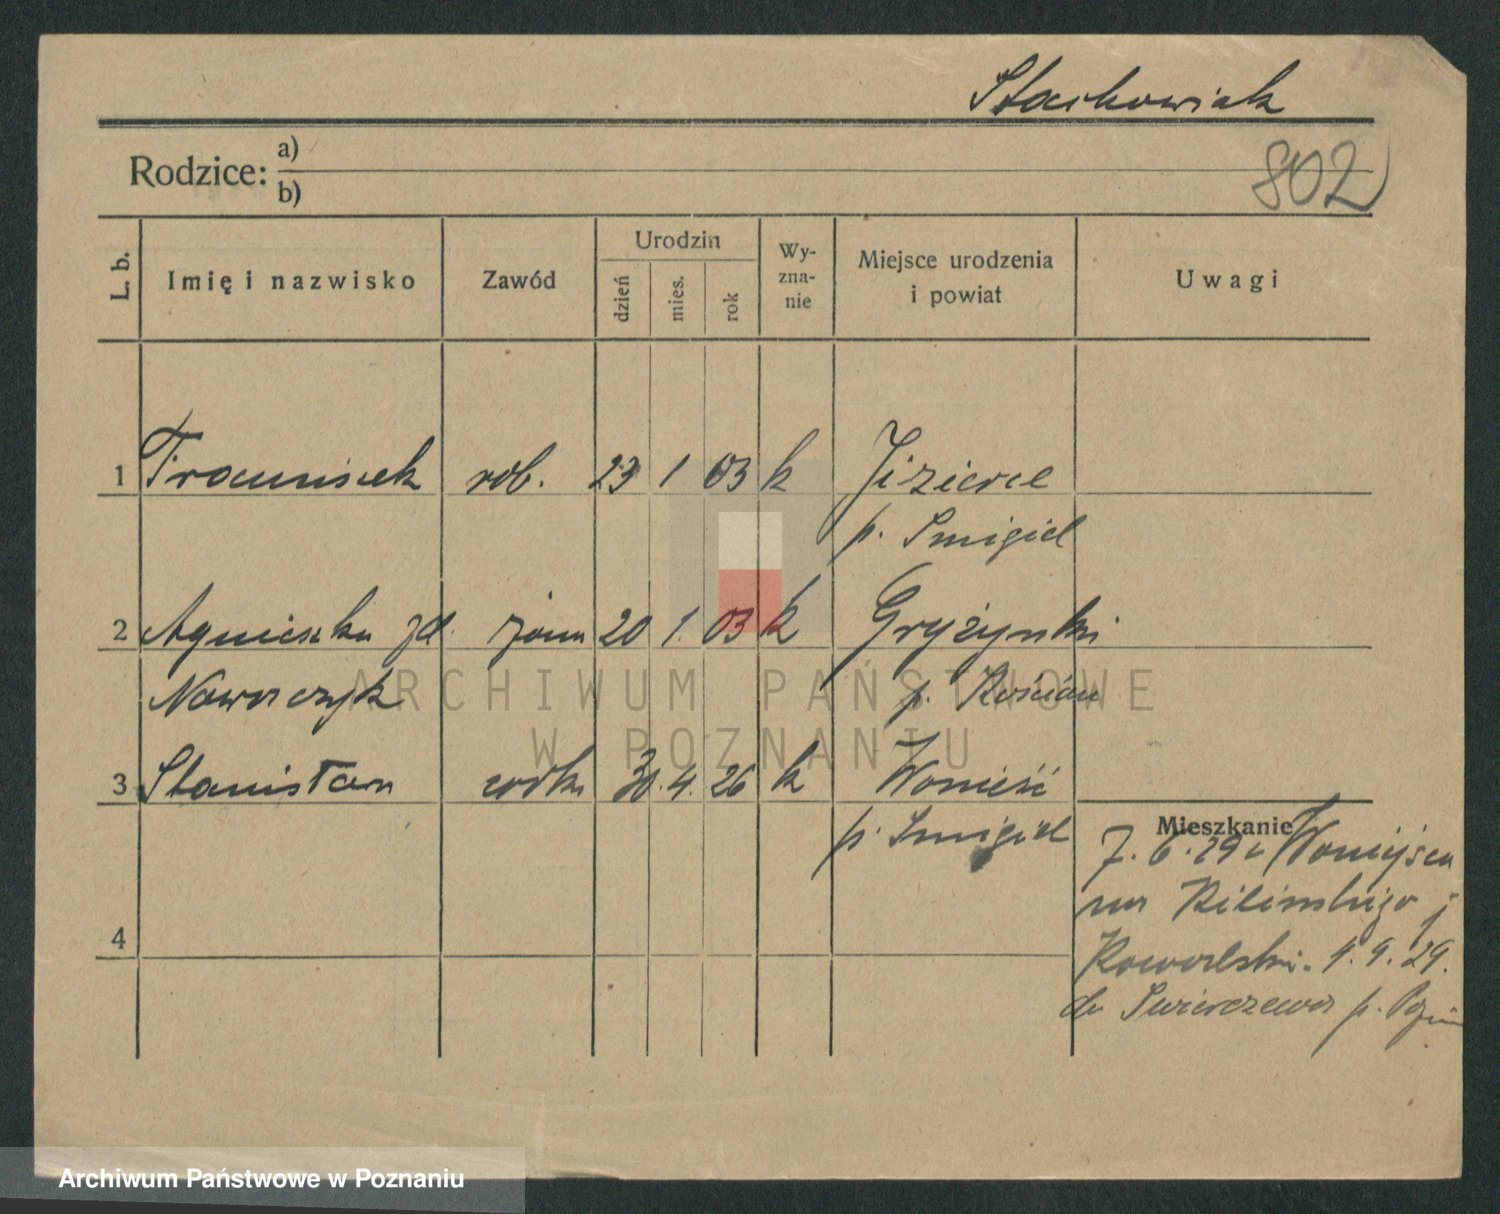 Stachowiak
802
Rodzice: a)
b)
L. b. Imię i nazwisko Zawód Urodzin dzień mies. rok Wy-zna-nie Miejsce urodzenia i powiat Uwagi
1 Franciszek rob. 23 1 03 k
p. Smigiel
2 Agnieszka żona 20 1. 03 k
Naworczyk p. Kościan
3 Stanisław 30. 4. 26 k Wonieść
p. Smigiel
Mieszkanie
7. 6. 29 z Woniejścia
na Kilinskiego
4
Kowalski. 1. 9. 29.
do Swierczewa p. Pozn
ARCHIWUM PAŃSTWOWE
W POZNANIU
Archiwum Państwowe w Poznaniu